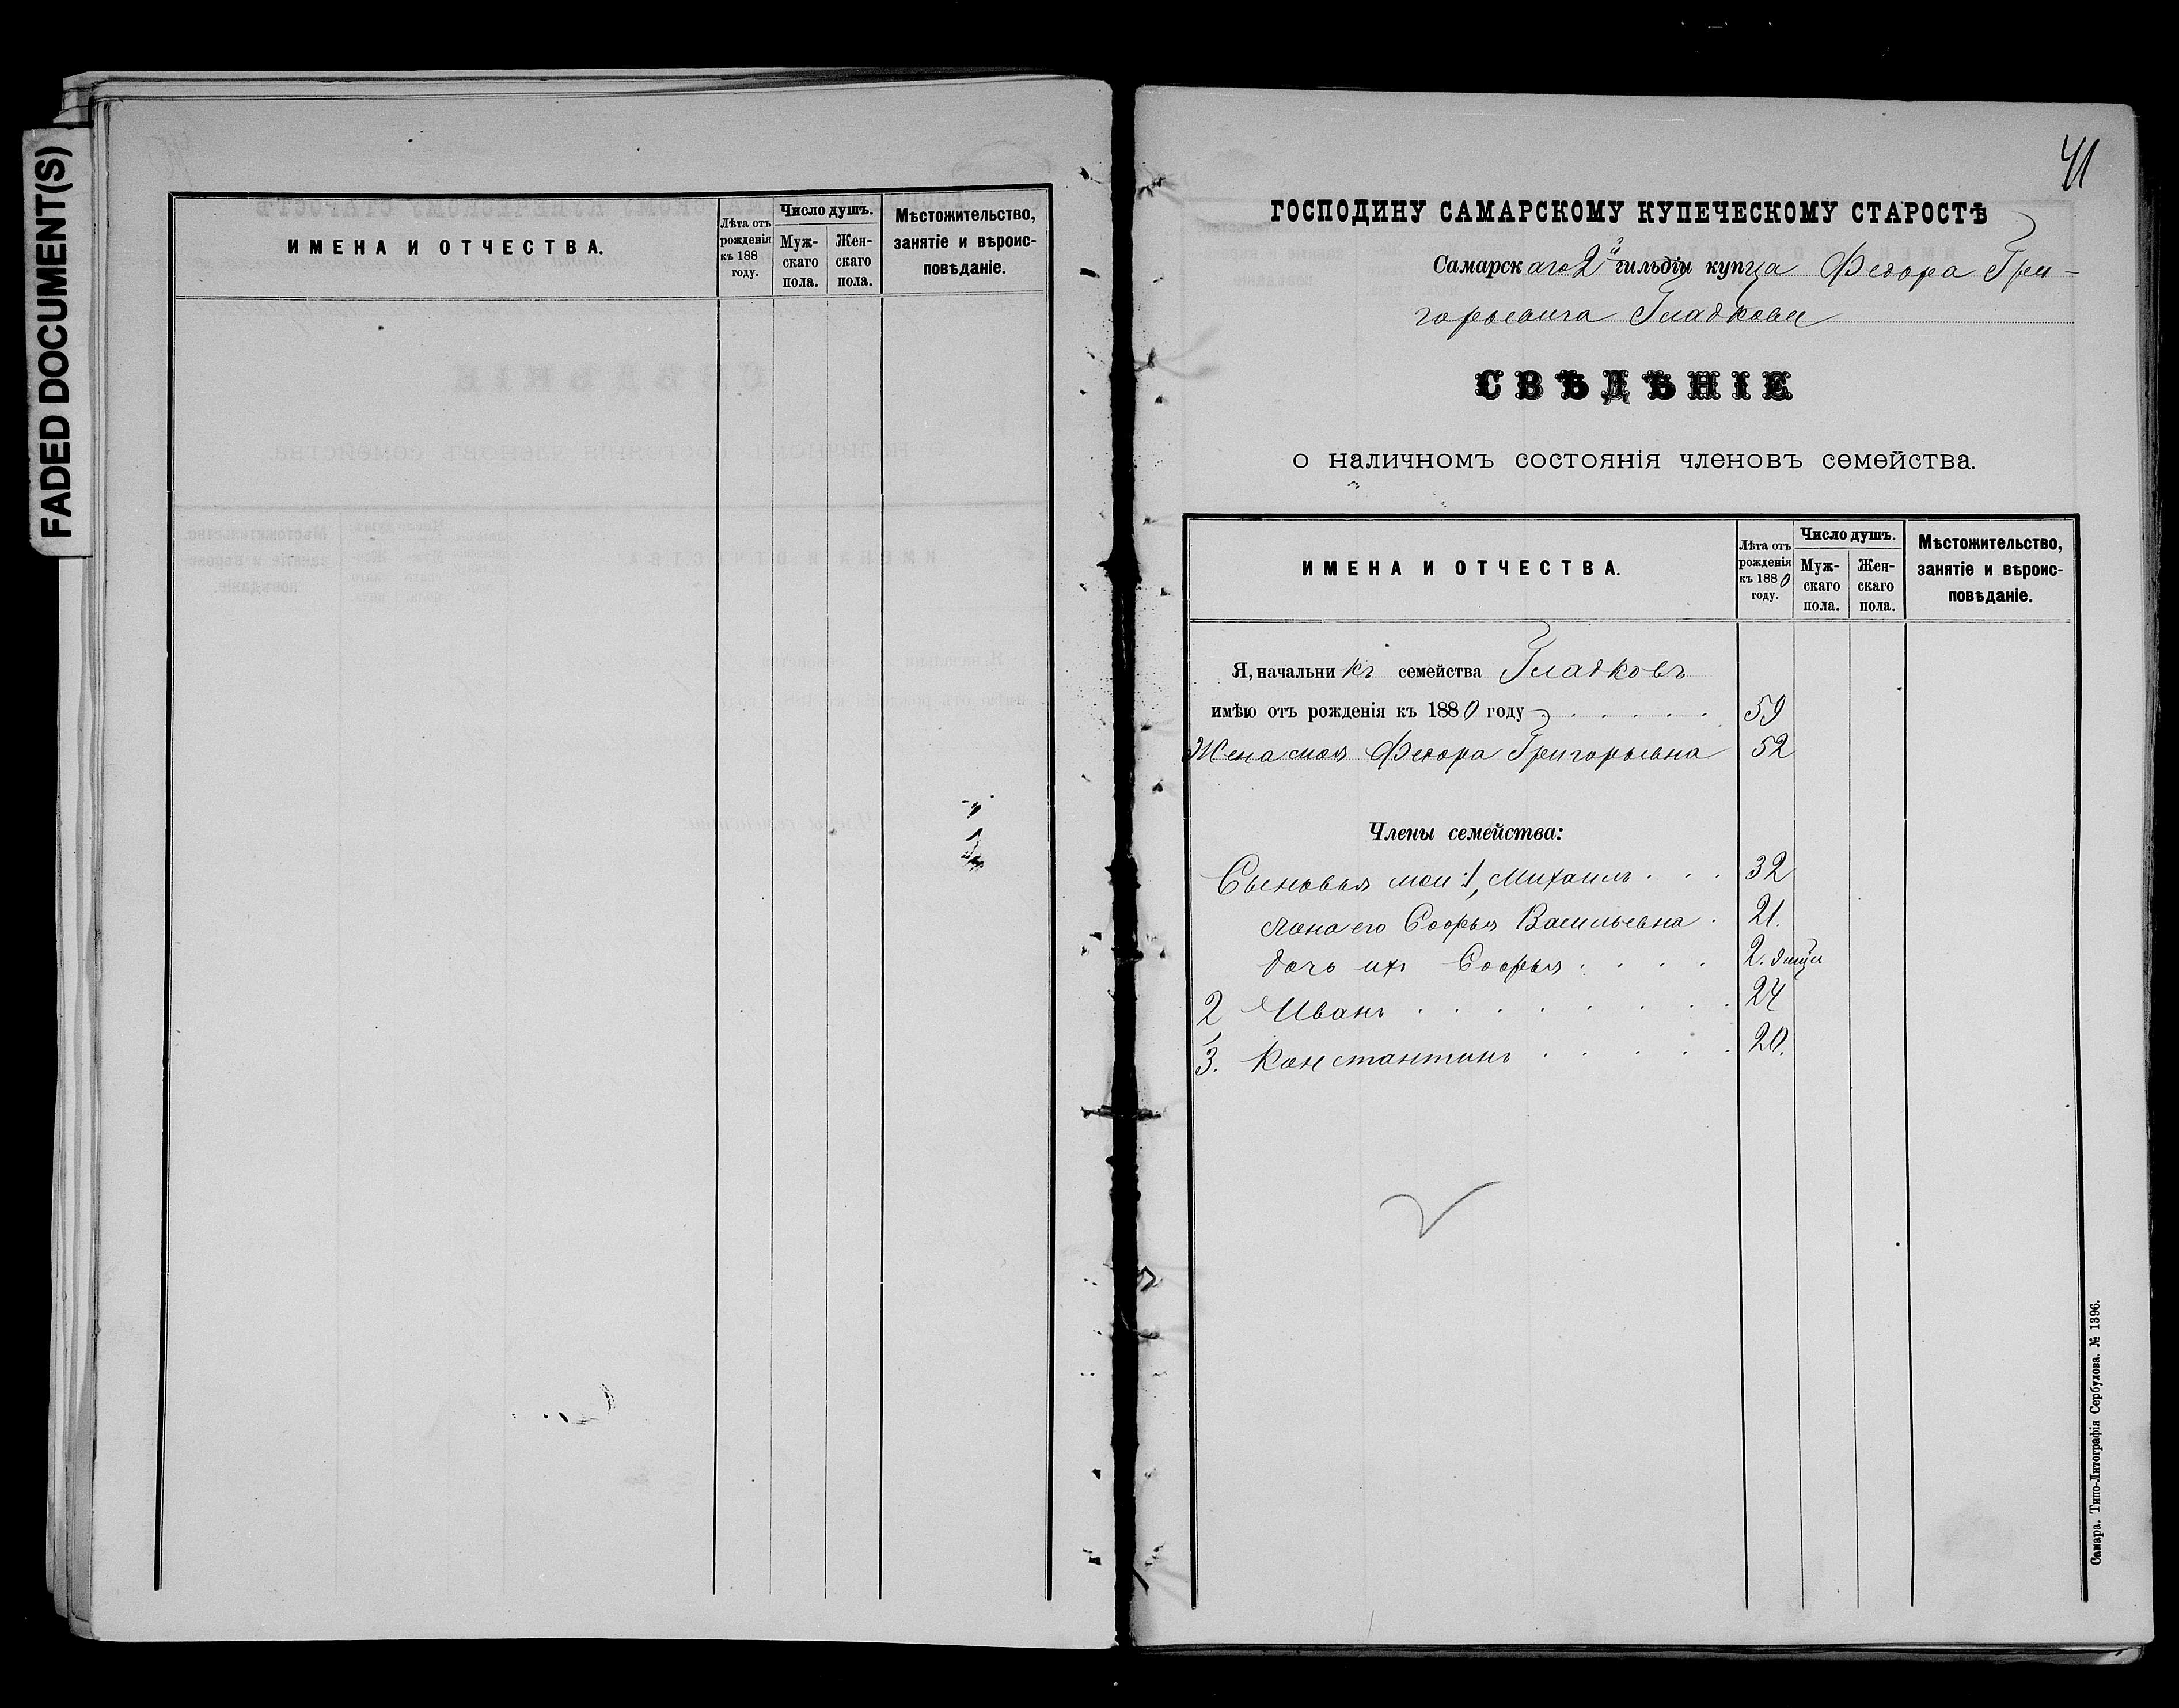 FADED DOCUMENT(S)
ИМЕНА И ОТЧЕСТВА.
Лѣта отъ рожденія къ 188 году.
Число душъ.
Мужскаго пола.
Женскаго пола.
Мѣстожительство, занятіе и вѣроисповѣданіе.
41
ГОСПОДИНУ САМАРСКОМУ КУПЕЧЕСКОМУ СТАРОСТѢ
Самарскаго 2й гильдіи купца Федора Гри-
горьевича Гладкова
СВѢДѢНІЕ
о наличномъ состоянія членовъ семейства.
ИМЕНА И ОТЧЕСТВА.
Лѣта отъ рожденія къ 1880 году.
Число душъ.
Мужскаго пола.
Женскаго пола.
Мѣстожительство, занятіе и вѣроисповѣданіе.
Я, начальникъ семейства Гладковъ
имѣю отъ рожденія къ 1880 году 59
Жена моя Федора Григорьевна 52
Члены семейства:
Сыновья мои: 1, Михаилъ 32
жена его Софья Васильевна 21.
дочь ихъ Софья 2.
2, Иванъ 24
3. Константинъ 20.
Самара. Типо-Литографія Сербулова. № 1396.